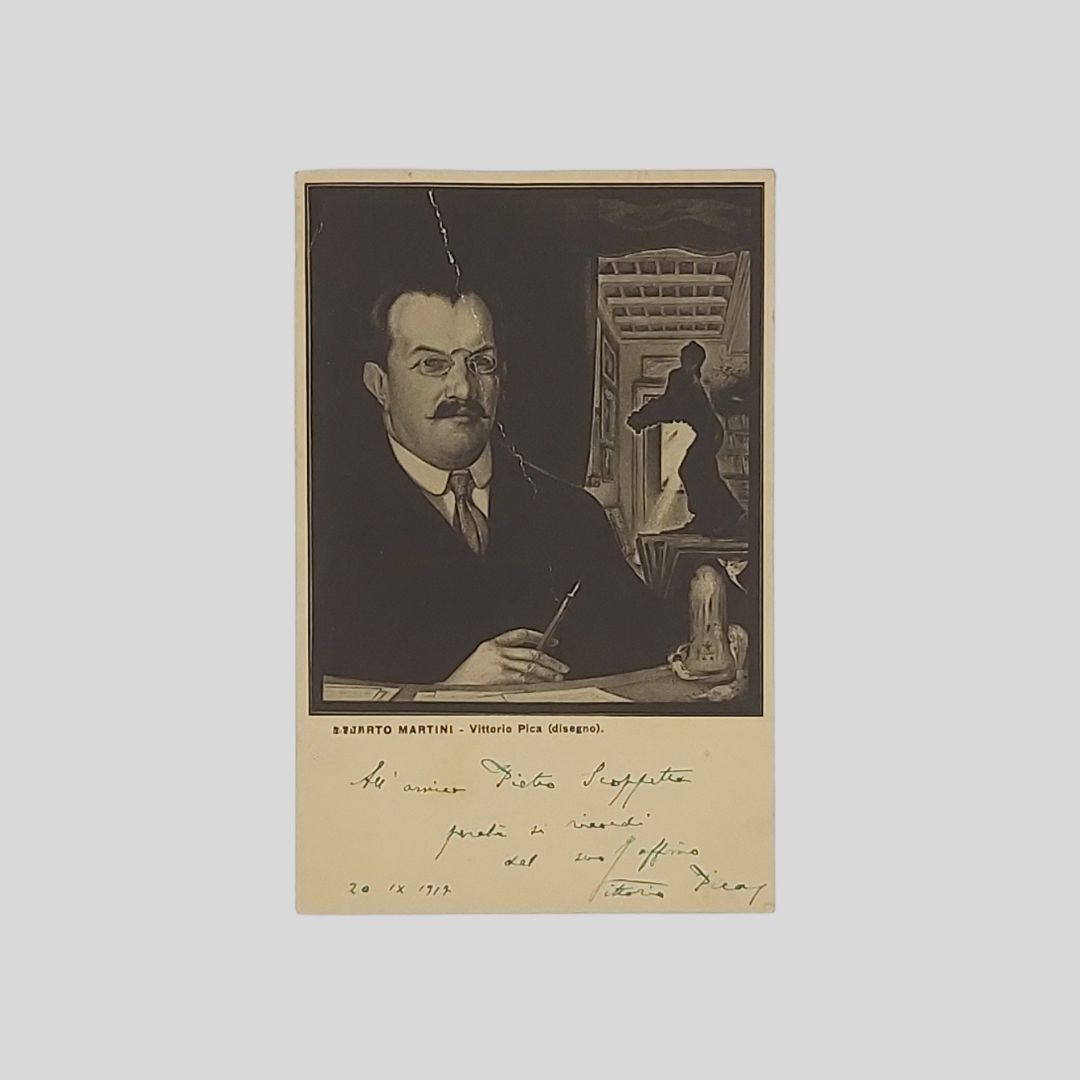 ALBERTO MARTINI - Vittorio Pica (disegno).
All' amico Pietro Scoppetta
perchè si ricordi
del suo affmo
Vittorio Pica
20 IX 1912